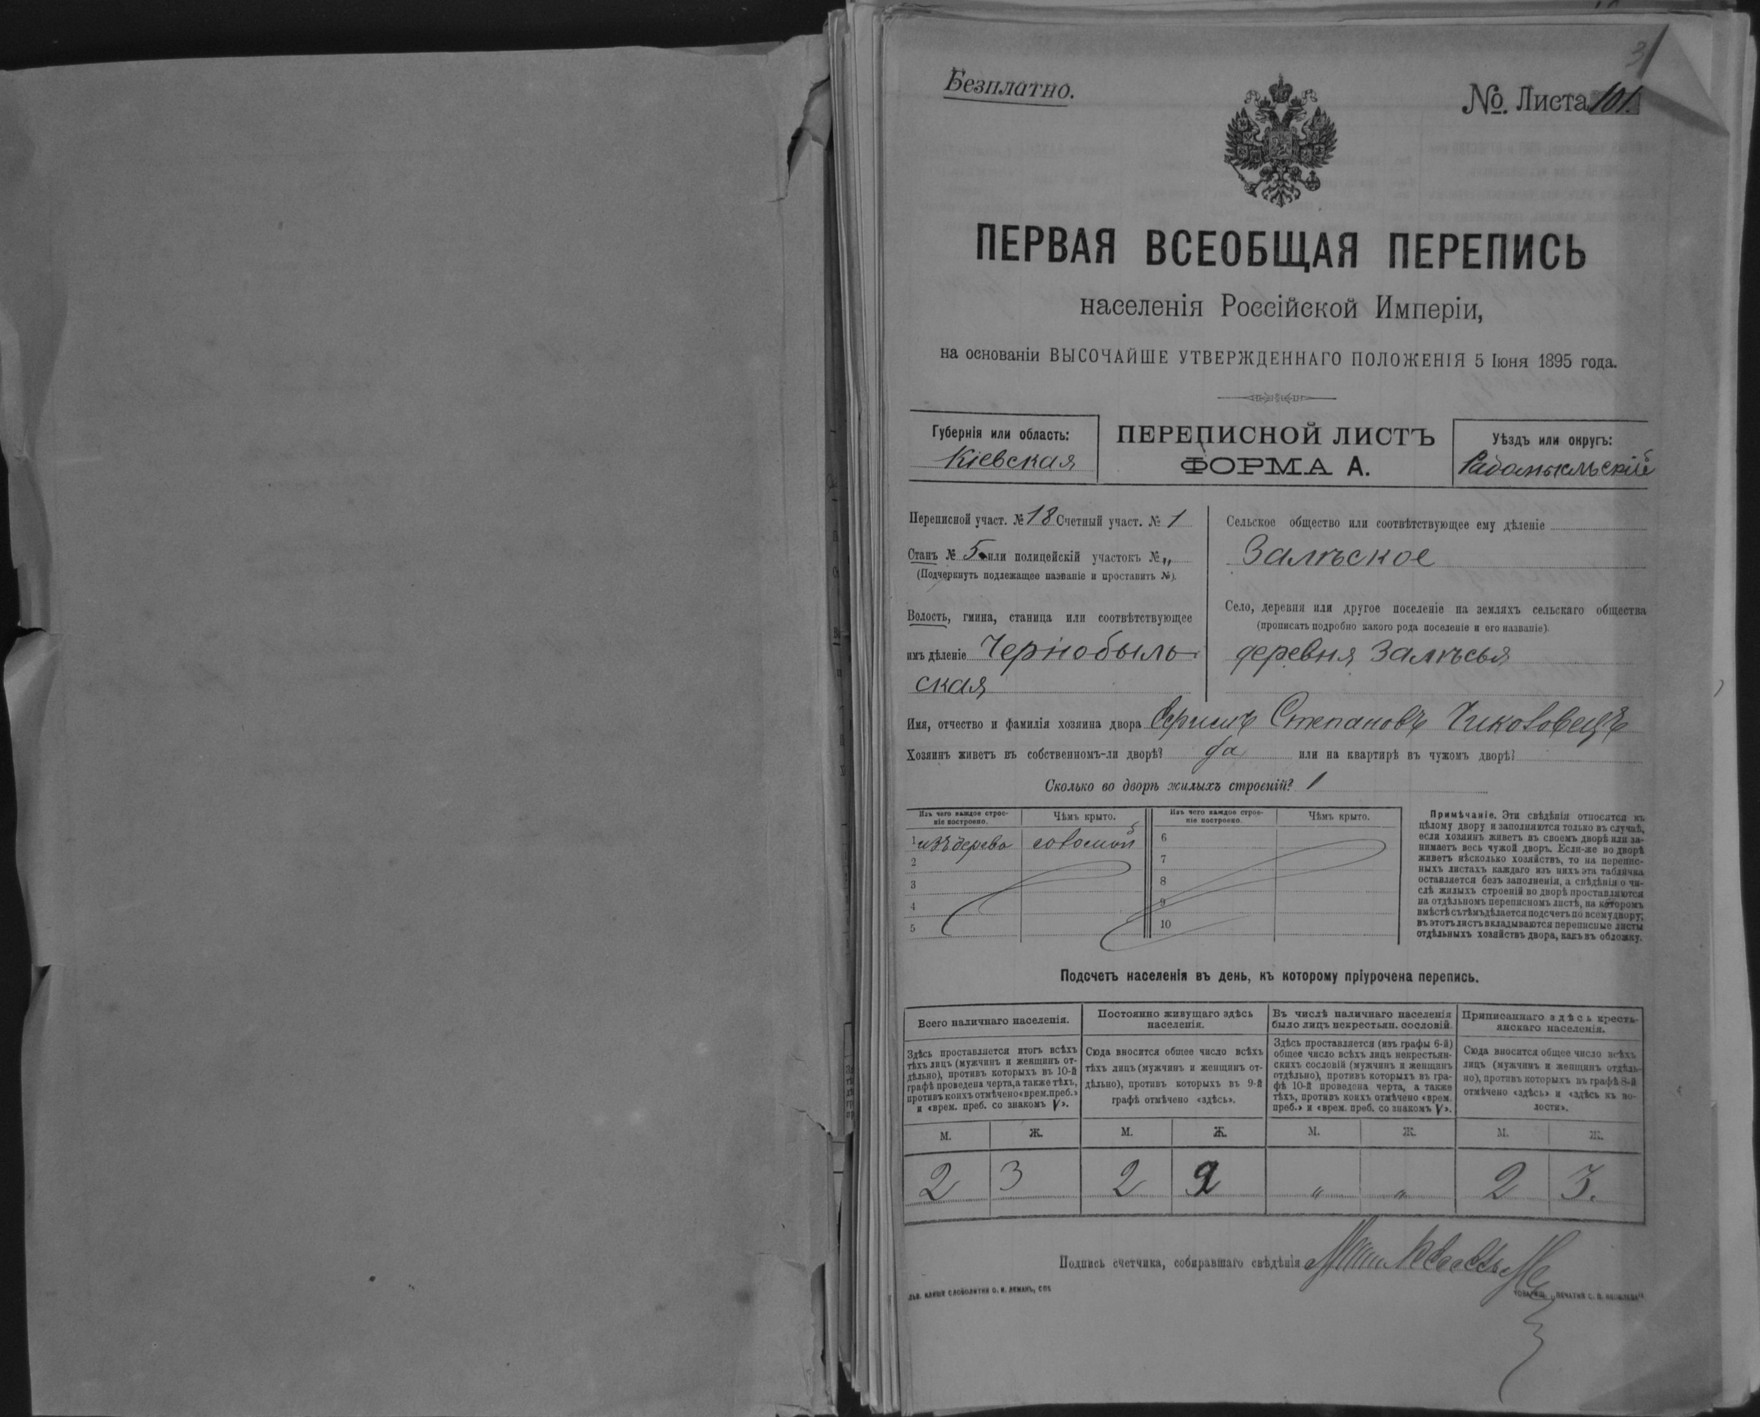 Безплатно.
№ Листа 101.
ПЕРВАЯ ВСЕОБЩАЯ ПЕРЕПИСЬ
населенія Россійской Имперіи,
на основаніи ВЫСОЧАЙШЕ УТВЕРЖДЕННАГО ПОЛОЖЕНІЯ 5 Іюня 1895 года.
Губернія или область:
Кіевская
ПЕРЕПИСНОЙ ЛИСТЪ
ФОРМА А.
Уѣздъ или округъ:
Радомысльскій
Переписной участ. № 18 Счетный участ. № 1
Станъ № 5 или полицейскій участокъ № „
(Подчеркнуть подлежащее названіе и проставить №).
Волость, гмина, станица или соотвѣтствующее
имъ дѣленіе Чернобыль-
ская
Сельское общество или соотвѣтствующее ему дѣленіе
Залѣское
Село, деревня или другое поселеніе на земляхъ сельскаго общества
(прописать подробно какого рода поселеніе и его названіе).
деревня Залѣсья
Имя, отчество и фамилія хозяина двора Степановъ
Хозяинъ живетъ въ собственномъ-ли дворѣ? да или на квартирѣ въ чужомъ дворѣ?
Сколько во дворѣ жилыхъ строеній? 1
Изъ чего каждое строе-
ніе построено.
Чѣмъ крыто.
Изъ чего каждое строе-
ніе построено.
Чѣмъ крыто.
1 изъ дерева соломой
2
3
4
5
6
7
8
9
10
Примѣчаніе. Эти свѣдѣнія относятся къ
цѣлому двору и заполняются только въ случаѣ,
если хозяинъ живетъ въ своемъ дворѣ или за-
нимаетъ весь чужой дворъ. Если-же во дворѣ
живетъ нѣсколько хозяйствъ, то на перепис-
ныхъ листахъ каждаго изъ нихъ эта табличка
оставляется безъ заполненія, а свѣдѣнія о чи-
слѣ жилыхъ строеній во дворѣ проставляются
на отдѣльномъ переписномъ листѣ, на которомъ
вмѣстѣ съ тѣмъ дѣлается подсчетъ по всему двору;
въ этотъ листъ вкладываются переписные листы
отдѣльныхъ хозяйствъ двора, какъ въ обложку.
Подсчетъ населенія въ день, къ которому пріурочена перепись.
Всего наличнаго населенія.
Здѣсь проставляется итогъ всѣхъ
тѣхъ лицъ (мужчинъ и женщинъ от-
дѣльно), противъ которыхъ въ 10-й
графѣ проведена черта, а также тѣхъ,
противъ коихъ отмѣчено «врем. преб.»
и «врем. преб. со знакомъ V».
Постоянно живущаго здѣсь
населенія.
Сюда вносится общее число всѣхъ
тѣхъ лицъ (мужчинъ и женщинъ от-
дѣльно), противъ которыхъ въ 9-й
графѣ отмѣчено «здѣсь».
Въ числѣ наличнаго населенія
было лицъ некрестьян. сословій.
Здѣсь проставляется (изъ графы 6-й)
общее число всѣхъ лицъ некрестьян-
скихъ сословій (мужчинъ и женщинъ
отдѣльно), противъ которыхъ въ гра-
фѣ 10-й проведена черта, а также
тѣхъ, противъ коихъ отмѣчено «врем.
преб.» и «врем. преб. со знакомъ V».
Приписаннаго здѣсь кресть-
янскаго населенія.
Сюда вносится общее число всѣхъ
лицъ (мужчинъ и женщинъ отдѣль-
но), противъ которыхъ въ графѣ 8-й
отмѣчено «здѣсь» и «здѣсь къ во-
лости».
М. Ж. М. Ж. М. Ж. М. Ж.
2 3 2 2 „ „ 2 3.
Подпись счетчика, собиравшаго свѣдѣнія